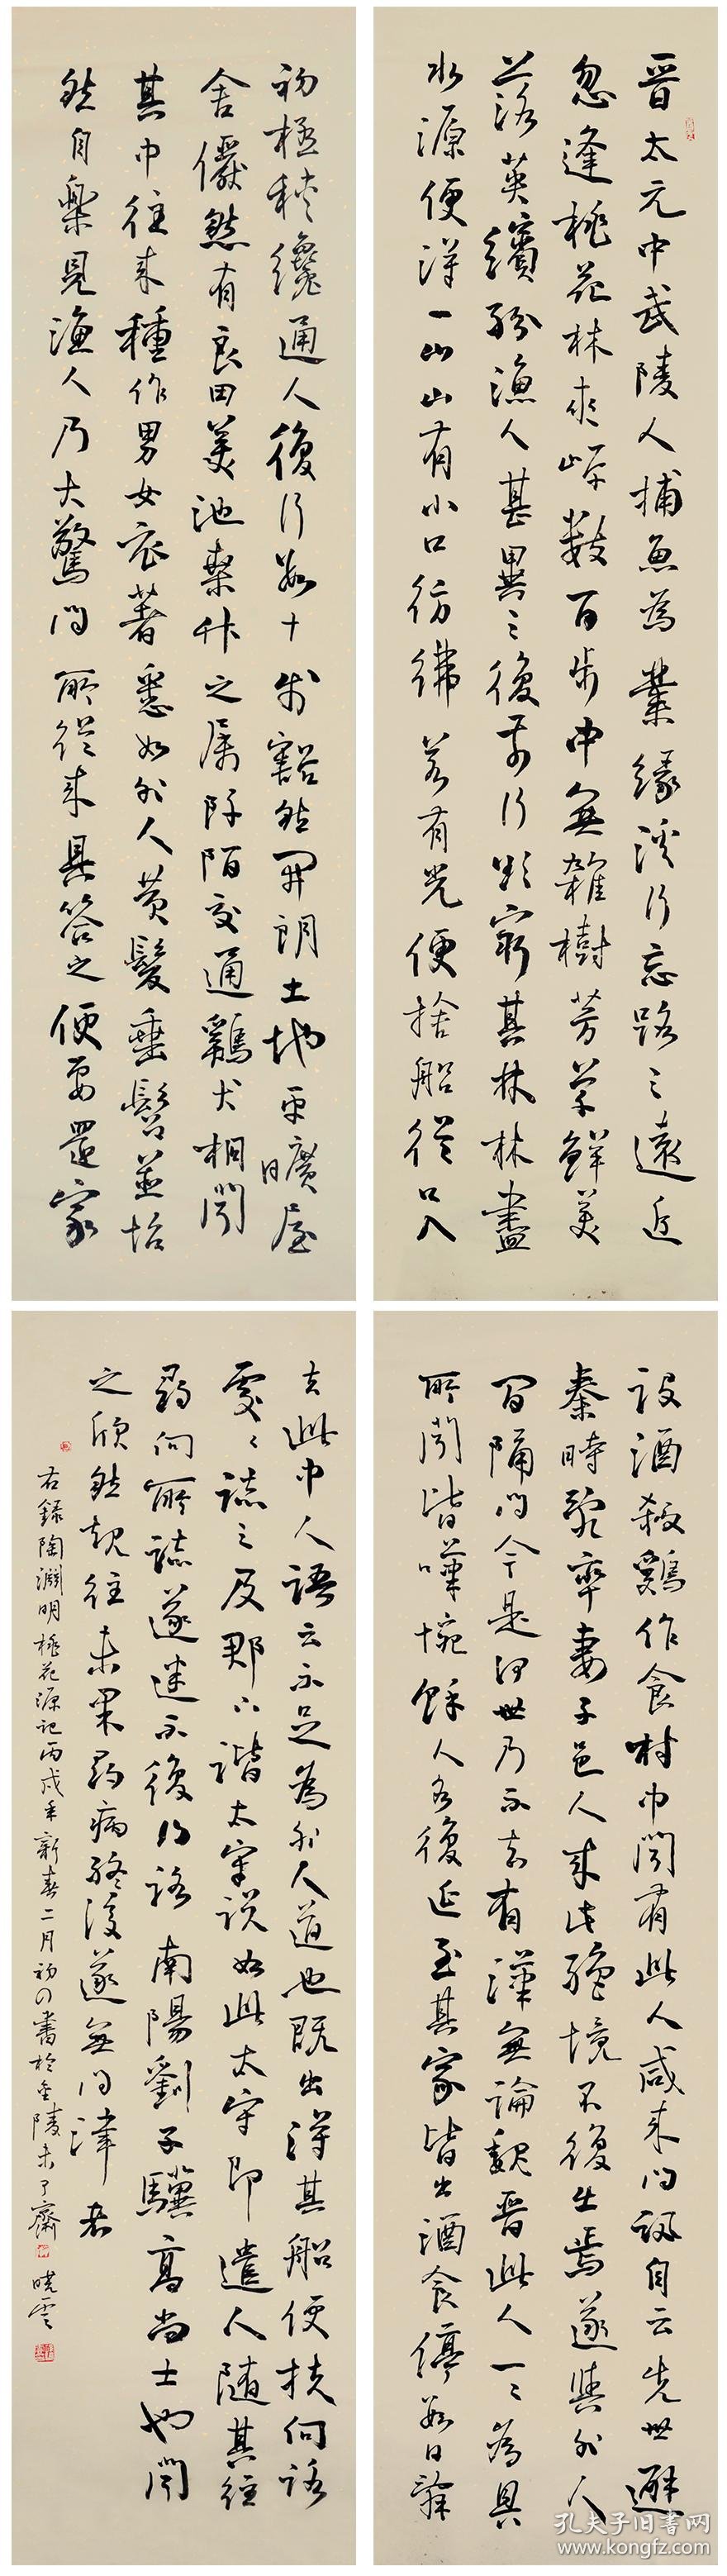 晉太元中武陵人捕魚為業緣溪行忘路之遠近
忽逢桃花林夾岸數百步中無雜樹芳草鮮美
落英繽紛漁人甚異之復前行欲窮其林林盡
水源便得一山山有小口彷彿若有光便捨船從口入
初極狹纔通人復行數十步豁然開朗土地平曠屋
舍儼然有良田美池桑竹之屬阡陌交通鷄犬相聞
其中往來種作男女衣著悉如外人黃髮垂髫並怡
然自樂見漁人乃大驚問所從來具答之便要還家
設酒殺鷄作食村中聞有此人咸來問訊自云先世避
秦時亂率妻子邑人來此絕境不復出焉遂與外人
間隔問今是何世乃不知有漢無論魏晉此人一一為具
所聞皆嘆惋餘人各復延至其家皆出酒食停數日辭
去此中人語云不足為外人道也既出得其船便扶向路
處處誌之及郡下詣太守說如此太守即遣人隨其往
尋向所誌遂迷不復得路南陽劉子驥高尚士也聞
之欣然規往未果尋病終後遂無問津者
右錄陶淵明桃花源記丙戌年新春二月初四書於金陵未了齋曉雲
孔夫子旧书网
www.kongfz.com